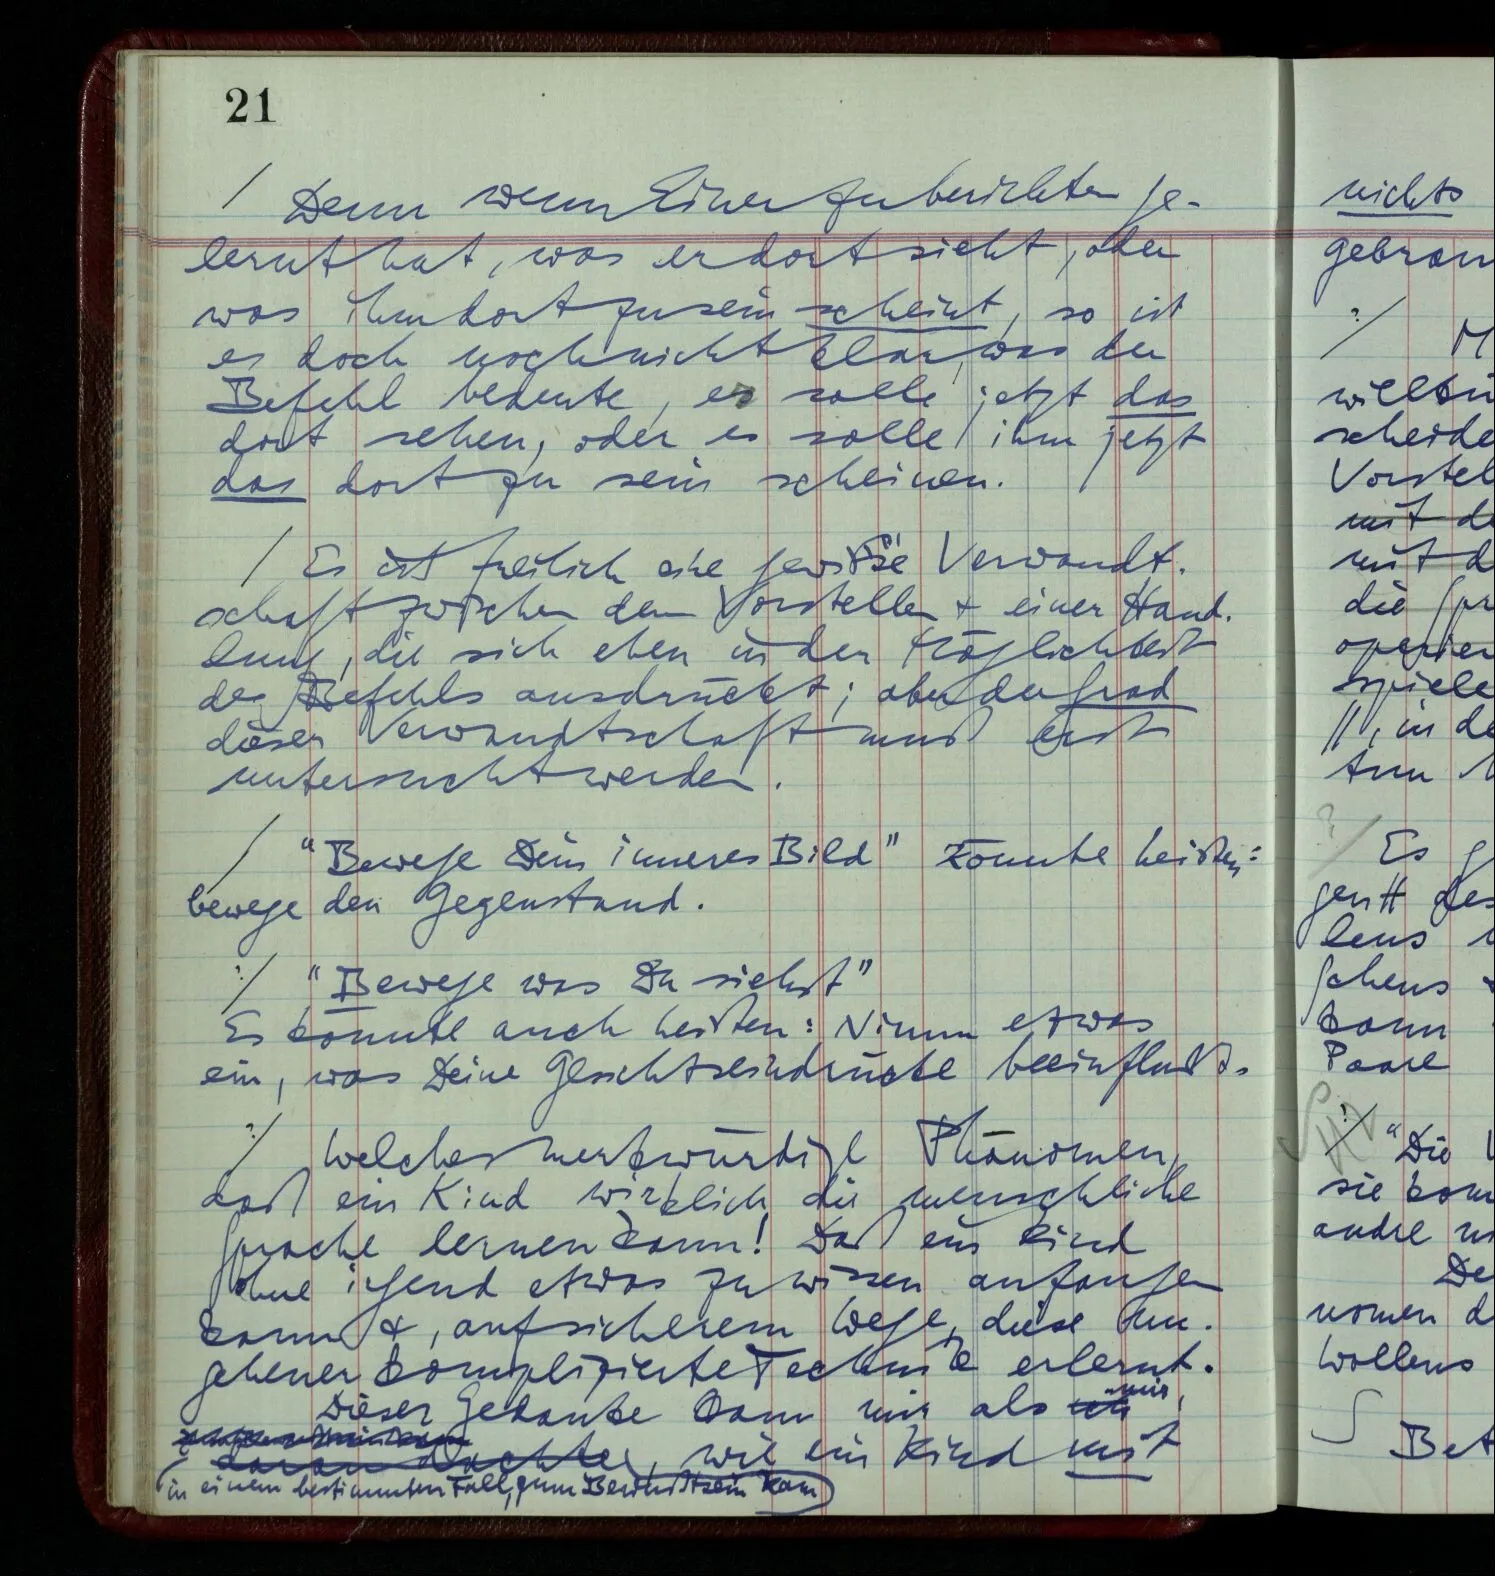 21
/ Denn wenn Einer zu berichten ge-
lernt hat, was er dort sieht, oder
was ihm dort zu sein scheint, so ist
es doch noch nicht klar, was der
Befehl bedeute, er solle jetzt das
dort sehen, oder es solle ihm jetzt
das dort zu sein scheinen.
/ Es ist freilich eine gewisse Verwandt-
schaft zwischen dem Vorstellen & einer Hand-
lung, die sich eben in der Möglichkeit
des Befehls ausdrückt; aber der Grad
dieser Verwandtschaft muß erst
untersucht werden.
/ "Bewege Dein inneres Bild" könnte heißen:
bewege den Gegenstand.
?/ "Bewege was Du siehst"
Es könnte auch heißen: Nimm etwas
ein, was Deine Gesichtseindrücke beeinflußt.
?/ Welches merkwürdige Phänomen,
daß ein Kind wirklich die menschliche
Sprache lernen kann! Daß ein Kind
ohne irgend etwas zu wissen anfangen
kann &, auf sicherem Wege, diese un-
geheuer komplizierte Technik erlernt.
Dieser Gedanke kam mir als mir,
daran dachte, wie ein Kind mit
in einem bestimmten Fall, zum Bewußtsein kam
nichts
gebrau
?/ M
willkü
scheide
Vorstel
mit de
mit d
die Spr
operier
spiele
//, in de
tun
?/ Es g
gentl des
lens
Sehens &
kann
Paare
?/ "Die V
sie kom
andre
De
nomen d
Wollens
Bet